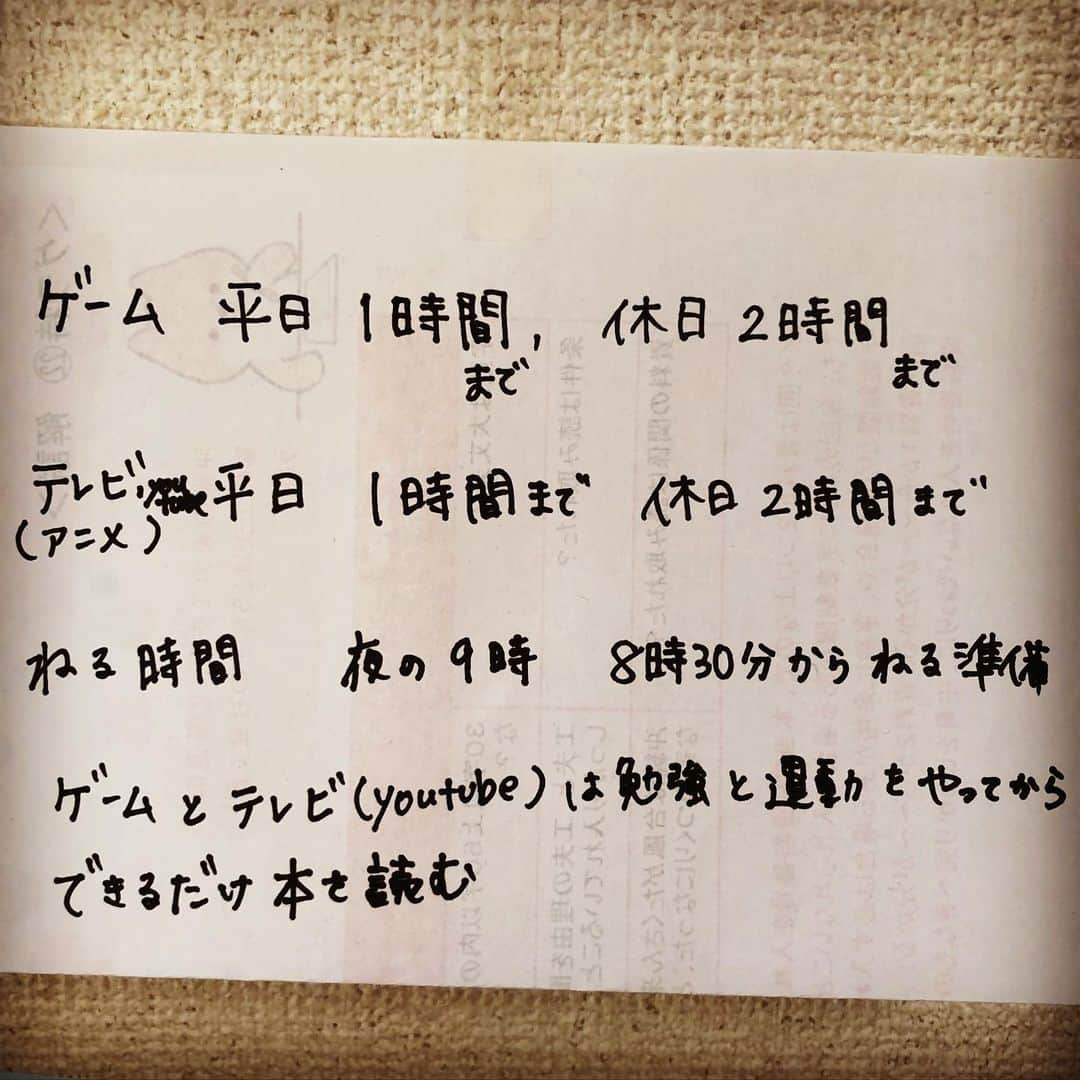 ゲーム 平日 1時間まで, 休日 2時間まで
テレビ, 平日 1時間まで 休日 2時間まで
(アニメ)
ねる時間 夜の9時 8時30分からねる準備
ゲームとテレビ(youtube)は勉強と運動をやってから
できるだけ本を読む